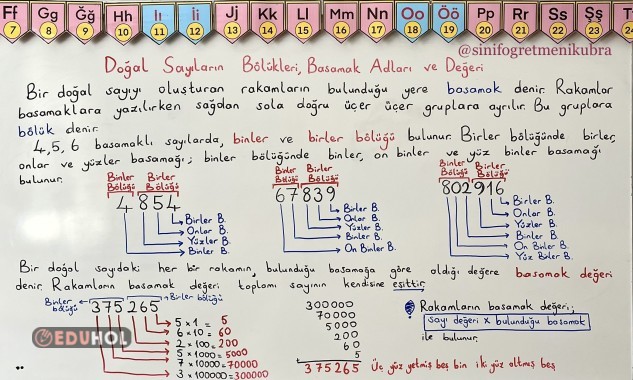 Ff Gg Ğğ Hh Iı İi Jj Kk Ll Mm Nn Oo Öö Pp Rr Ss Şş T
7 8 9 10 11 12 13 14 15 16 17 18 19 20 21 22 23 24
@sinifogretmenikubra
Doğal Sayıların Bölükleri, Basamak Adları ve Değeri
Bir doğal sayıyı oluşturan rakamların bulunduğu yere basamak denir. Rakamlar
basamaklara yazılırken sağdan sola doğru üçer üçer gruplara ayrılır. Bu gruplara
bölük denir.
4, 5, 6 basamaklı sayılarda, binler ve birler bölüğü bulunur. Birler bölüğünde birler,
onlar ve yüzler basamağı; binler bölüğünde binler, on binler ve yüz binler basamağı
bulunur.
Binler Bölüğü Birler Bölüğü
4854
Birler B.
Onlar B.
Yüzler B.
Binler B.
Binler Bölüğü Birler Bölüğü
67839
Birler B.
Onlar B.
Yüzler B.
Binler B.
On Binler B.
Binler Bölüğü Birler Bölüğü
802916
Birler B.
Onlar B.
Yüzler B.
Binler B.
On Binler B.
Yüz Binler B.
Bir doğal sayıdaki her bir rakamın, bulunduğu basamağa göre aldığı değere basamak değeri
denir. Rakamların basamak değeri toplamı sayının kendisine eşittir.
Binler bölüğü 375265 Birler bölüğü
5 x 1 = 5
6 x 10 = 60
2 x 100 = 200
5 x 1000 = 5000
7 x 10000 = 70000
3 x 100000 = 300000
300000
70000
5000
200
60
5
375265 Üç yüz yetmiş beş bin iki yüz altmış beş
Rakamların basamak değeri;
sayı değeri x bulunduğu basamak
ile bulunur.
EDUHOL